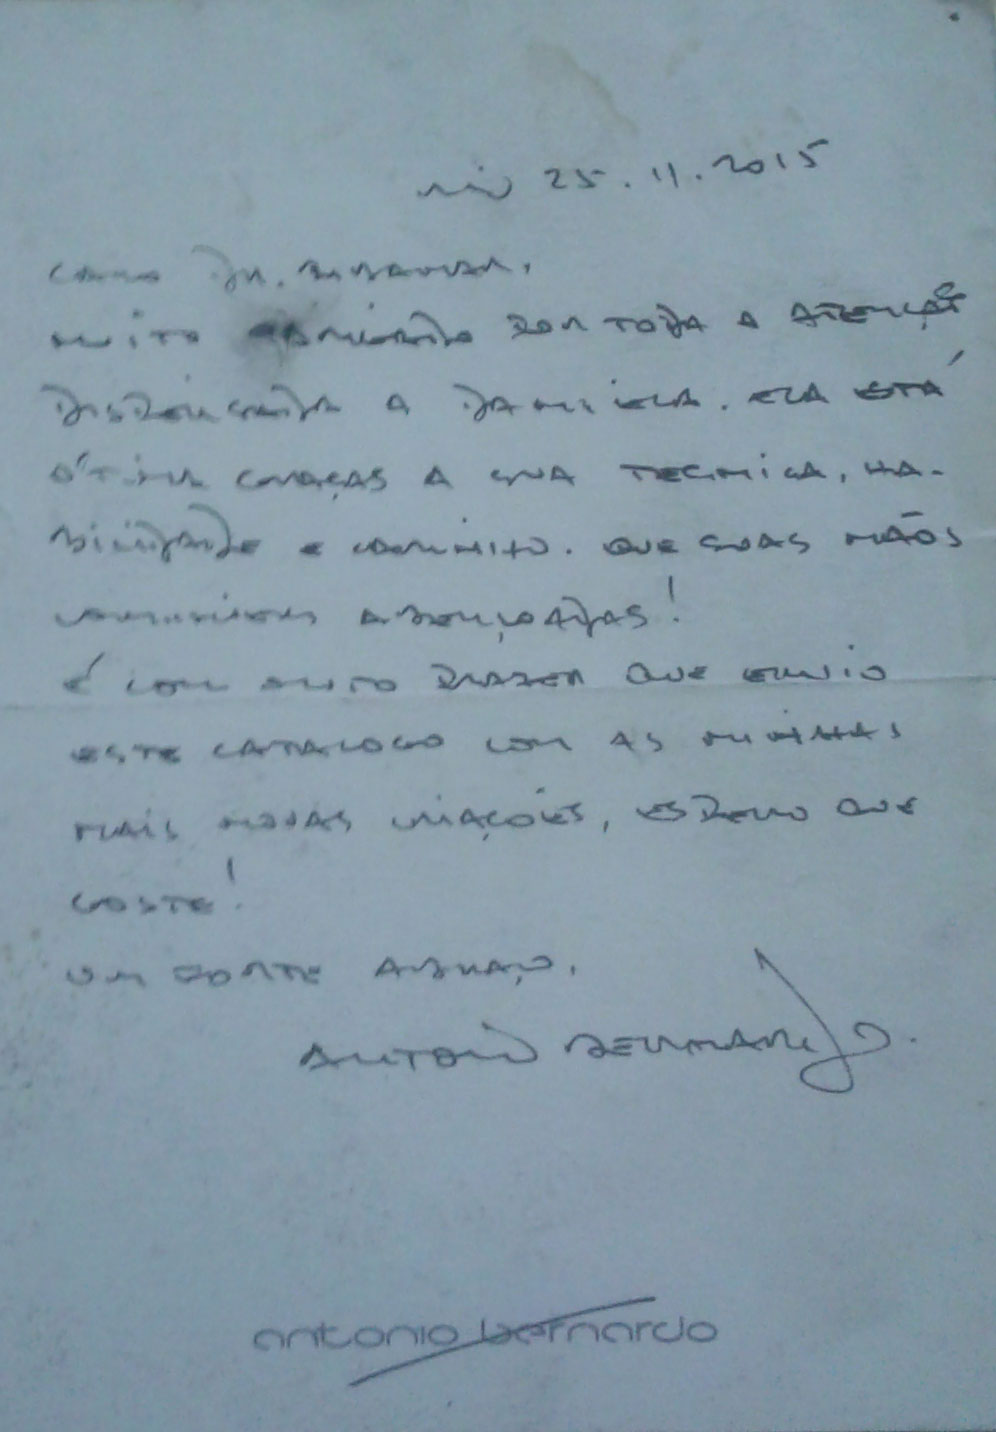 Rio 25.11.2015
CARO DR.
MUITO OBRIGADO POR TODA A ATENÇÃO
DISPENSADA A DANIELA. ELA ESTÁ
ÓTIMA GRAÇAS A SUA TECNICA, HA-
BILIDADE E CARINHO. QUE SUAS MÃOS
CONTINUEM ABENÇOADAS!
É COM MUITO PRAZER QUE ENVIO
ESTE CATALOGO COM AS MINHAS
MAIS NOVAS CRIAÇÕES, ESPERO QUE
GOSTE!
UM FORTE ABRAÇO,
ANTONIO BERNARDO.
antonio bernardo